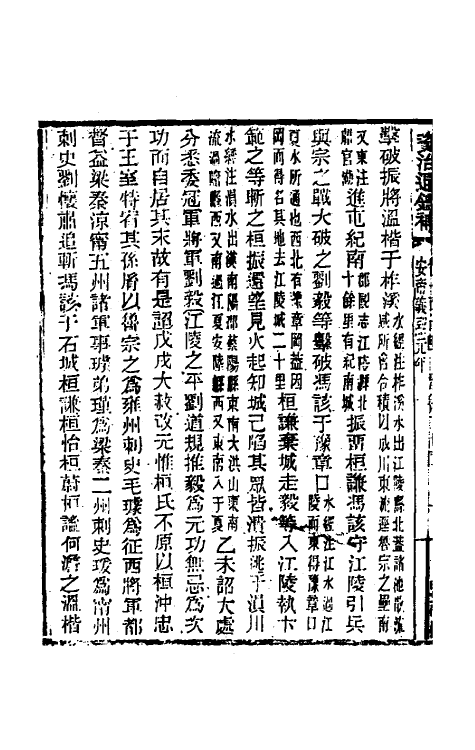 資治通鑑補
安帝義熙元年
擊破振將溫楷于柞溪水經注柞溪水出江陵縣北蓋諸池散流咸所會合積以成川東流逕魯宗之壘南
又東注船官湖進屯紀南郡縣志江陵縣北十餘里有紀南城振留桓謙馮該守江陵引兵
與宗之戰大破之劉毅等擊破馮該于豫章口水經注江水過江陵而東得豫章口
夏水所通也西北有豫章岡蓋因岡而得名其地去江陵城二十里桓謙棄城走毅等入江陵執卞
範之等斬之桓振還望見火起知城已陷其眾皆潰振逃于溳川
水經注溳水出漢南陽郡蔡陽縣東南大洪山東南流過隨縣西又南過江夏安陸縣西又東南入于夏乙未詔大處
分悉委冠軍將軍劉毅江陵之平劉道規推毅爲元功無忌爲次
功而自居其末故有是詔戊戌大赦改元惟桓氏不原以桓沖忠
于王室特宥其孫胤以魯宗之爲雍州刺史毛璩爲征西將軍都
督益梁秦涼甯五州諸軍事璩弟瑾爲梁秦二州刺史瑗爲甯州
刺史劉懷肅追斬馮該于石城桓謙桓怡桓蔚桓謐何澹之溫楷